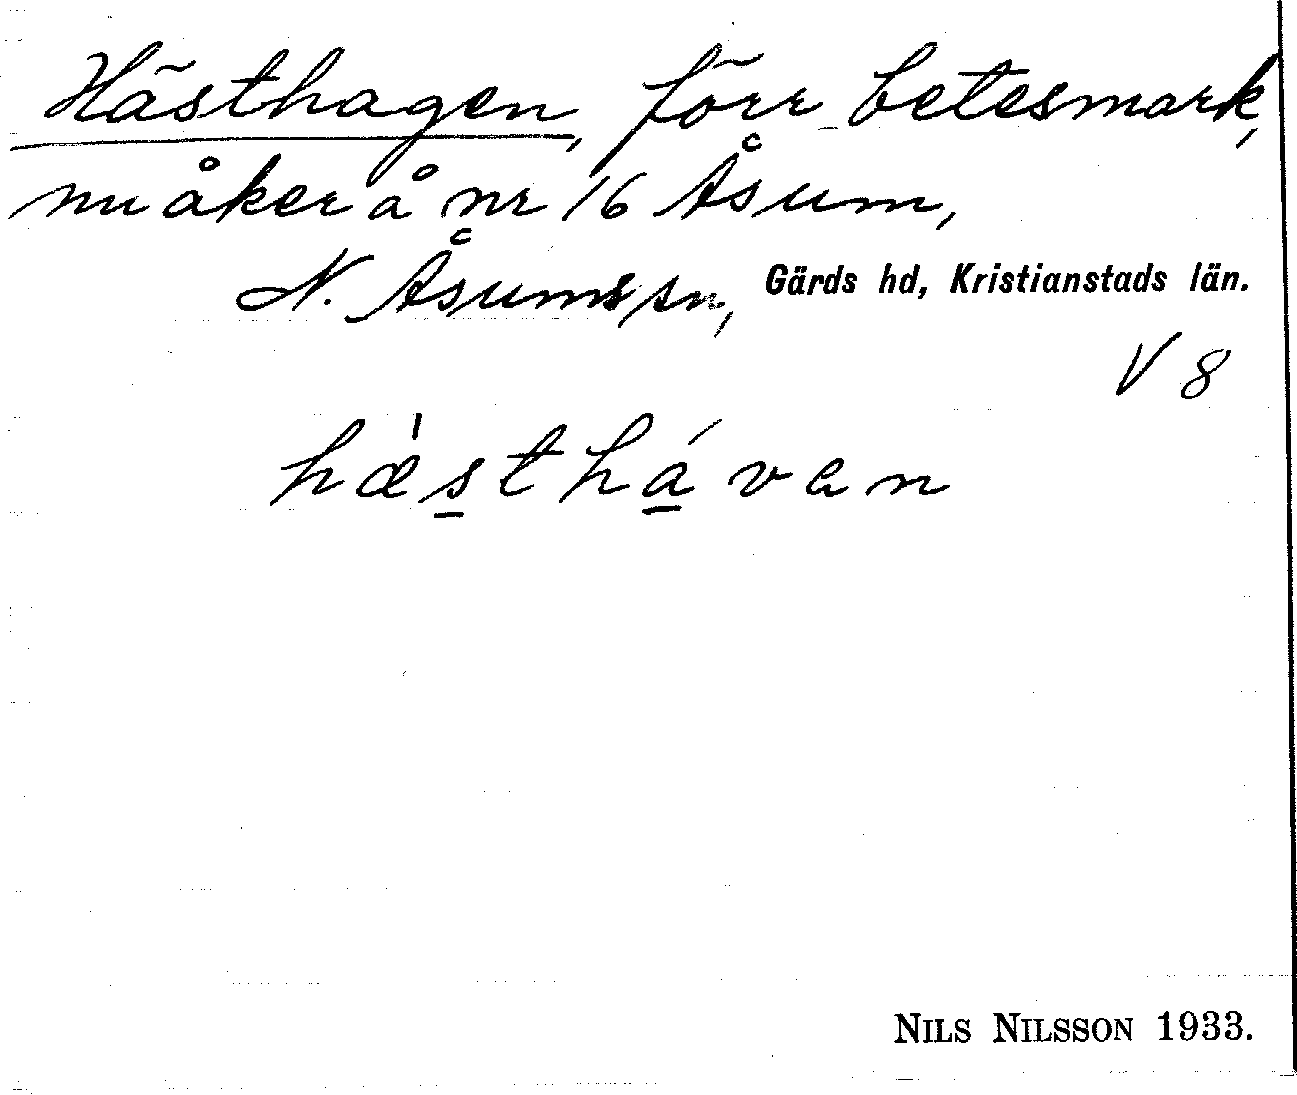 Hästhagen, förr betesmark,
nu åker å nr 16 Åsum,
N. Åsums sn, Gärds hd, Kristianstads län.
V 8
hæ̀sthávan
NILS NILSSON 1933.